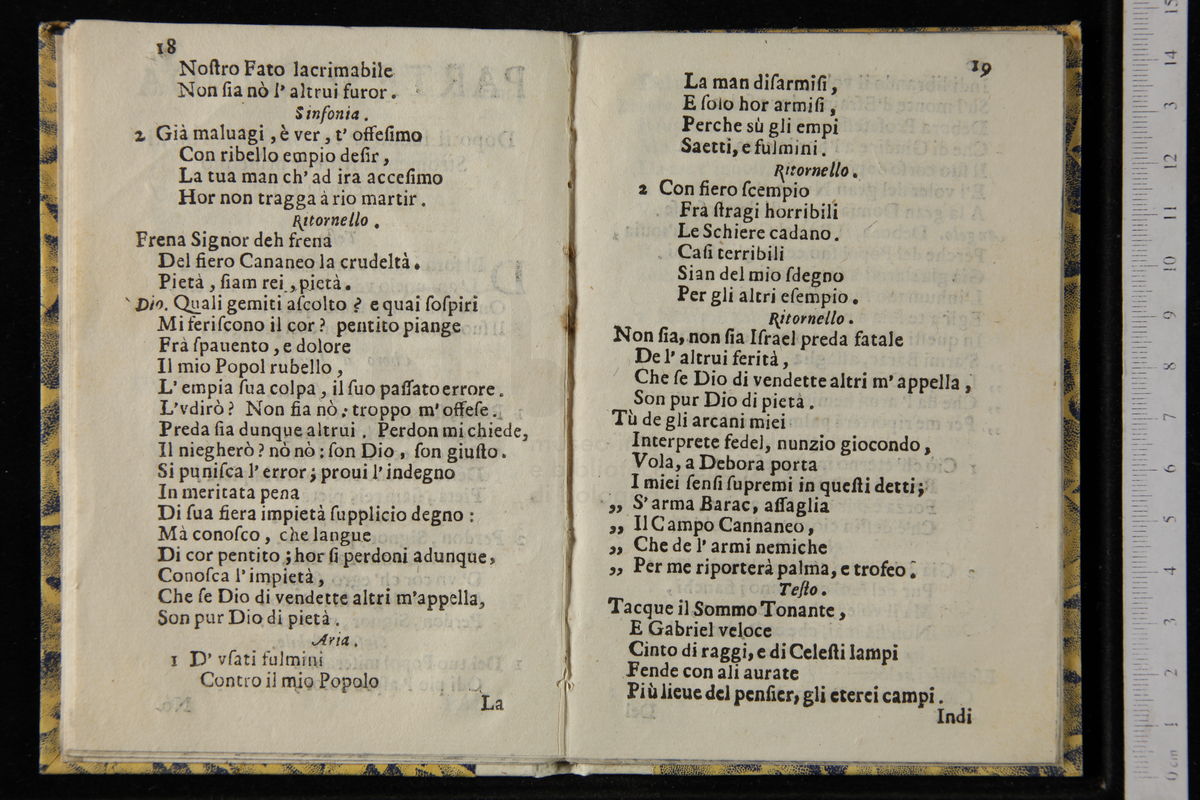 18
Noſtro Fato lacrimabile
Non ſia nò l' altrui furor.
Sinfonia.
2 Già maluagi, è ver, t' offeſimo
Con ribello empio deſir,
La tua man ch' ad ira acceſimo
Hor non tragga à rio martir.
Ritornello.
Frena Signor deh frena
Del fiero Cananeo la crudeltà.
Pietà, ſiam rei, pietà.
Dio. Quali gemiti aſcolto? e quai ſoſpiri
Mi feriſcono il cor? pentito piange
Frà ſpauento, e dolore
Il mio Popol rubello,
L' empia ſua colpa, il ſuo paſſato errore.
L'vdirò? Non ſia nò; troppo m' offeſe.
Preda ſia dunque altrui. Perdon mi chiede,
Il niegherò? nò nò: ſon Dio, ſon giuſto.
Si puniſca l' error; proui l' indegno
In meritata pena
Di ſua fiera impietà ſupplicio degno:
Mà conoſco, che langue
Di cor pentito; hor ſi perdoni adunque,
Conoſca l' impietà,
Che ſe Dio di vendette altri m'appella,
Son pur Dio di pietà.
Aria.
1 D' vſati fulmini
Contro il mio Popolo
La
19
La man diſarmiſi,
E ſolo hor armiſi,
Perche sù gli empi
Saetti, e fulmini.
Ritornello.
2 Con fiero ſcempio
Fra ſtragi horribili
Le Schiere cadano.
Caſi terribili
Sian del mio ſdegno
Per gli altri eſempio.
Ritornello.
Non ſia, non ſia Iſrael preda fatale
De l' altrui ferità,
Che ſe Dio di vendette altri m' appella,
Son pur Dio di pietà.
Tù de gli arcani miei
Interprete fedel, nunzio giocondo,
Vola, a Debora porta
I miei ſenſi ſupremi in queſti detti;
„ S' arma Barac, aſſaglia
„ Il Campo Cannaneo,
„ Che de l' armi nemiche
„ Per me riporterà palma, e trofeo.
Teſto.
Tacque il Sommo Tonante,
E Gabriel veloce
Cinto di raggi, e di Celeſti lampi
Fende con ali aurate
Più lieue del penſier, gli eterei campi.
Indi